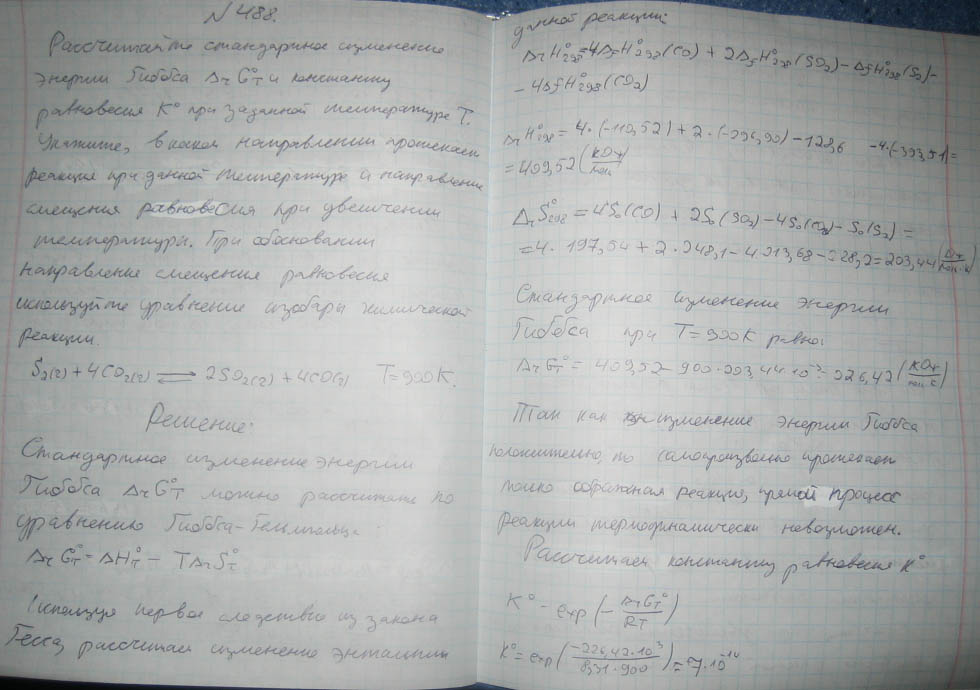 N 488.
Рассчитайте стандартное изменение
энергии Гиббса ΔrG°T и константу
равновесия K° при заданной температуре T.
Укажите, в каком направлении протекает
реакция при данной температуре и направление
смещения равновесия при увеличении
температуры. При обосновании
направления смещения равновесия
используйте уравнение изобары химической
реакции.
S2(г) + 4CO2(г) ⇌ 2SO2(г) + 4CO(г) T=900K.
Решение:
Стандартное изменение энергии
Гиббса ΔrG°T можно рассчитать по
уравнению Гиббса-Гельмгольца:
ΔrG°T = ΔH°T − TΔrS°T
Используя первое следствие из закона
Гесса, рассчитаем изменение энтальпии
данной реакции:
ΔrH°298=4ΔfH°298(CO) + 2ΔfH°298(SO2) − ΔfH°298(S2) −
− 4ΔfH°298(CO2)
ΔrH°298 = 4·(-110,52) + 2·(-296,90) − 128,6 −4·(-393,51) =
= 409,52 (кДж/моль)
ΔrS°298 = 4S°(CO) + 2S°(SO2) − 4S°(CO2) − S°(S2) =
= 4·197,54 + 2·248,1 − 4·213,68 − 228,2 = 203,44 (Дж/моль·К)
Стандартное изменение энергии
Гиббса при T=900K равно:
ΔrG°T = 409,52 − 900·203,44·10⁻³ = 226,42 (кДж/моль·К)
Так как изменение энергии Гиббса
положительно, то самопроизвольно протекает
только обратная реакция, прямой процесс
реакции термодинамически невозможен.
Рассчитаем константу равновесия K°
K° = exp(−ΔrG°T/RT)
K° = exp(−226,42·10³/8,31·900) = 7·10⁻¹⁴